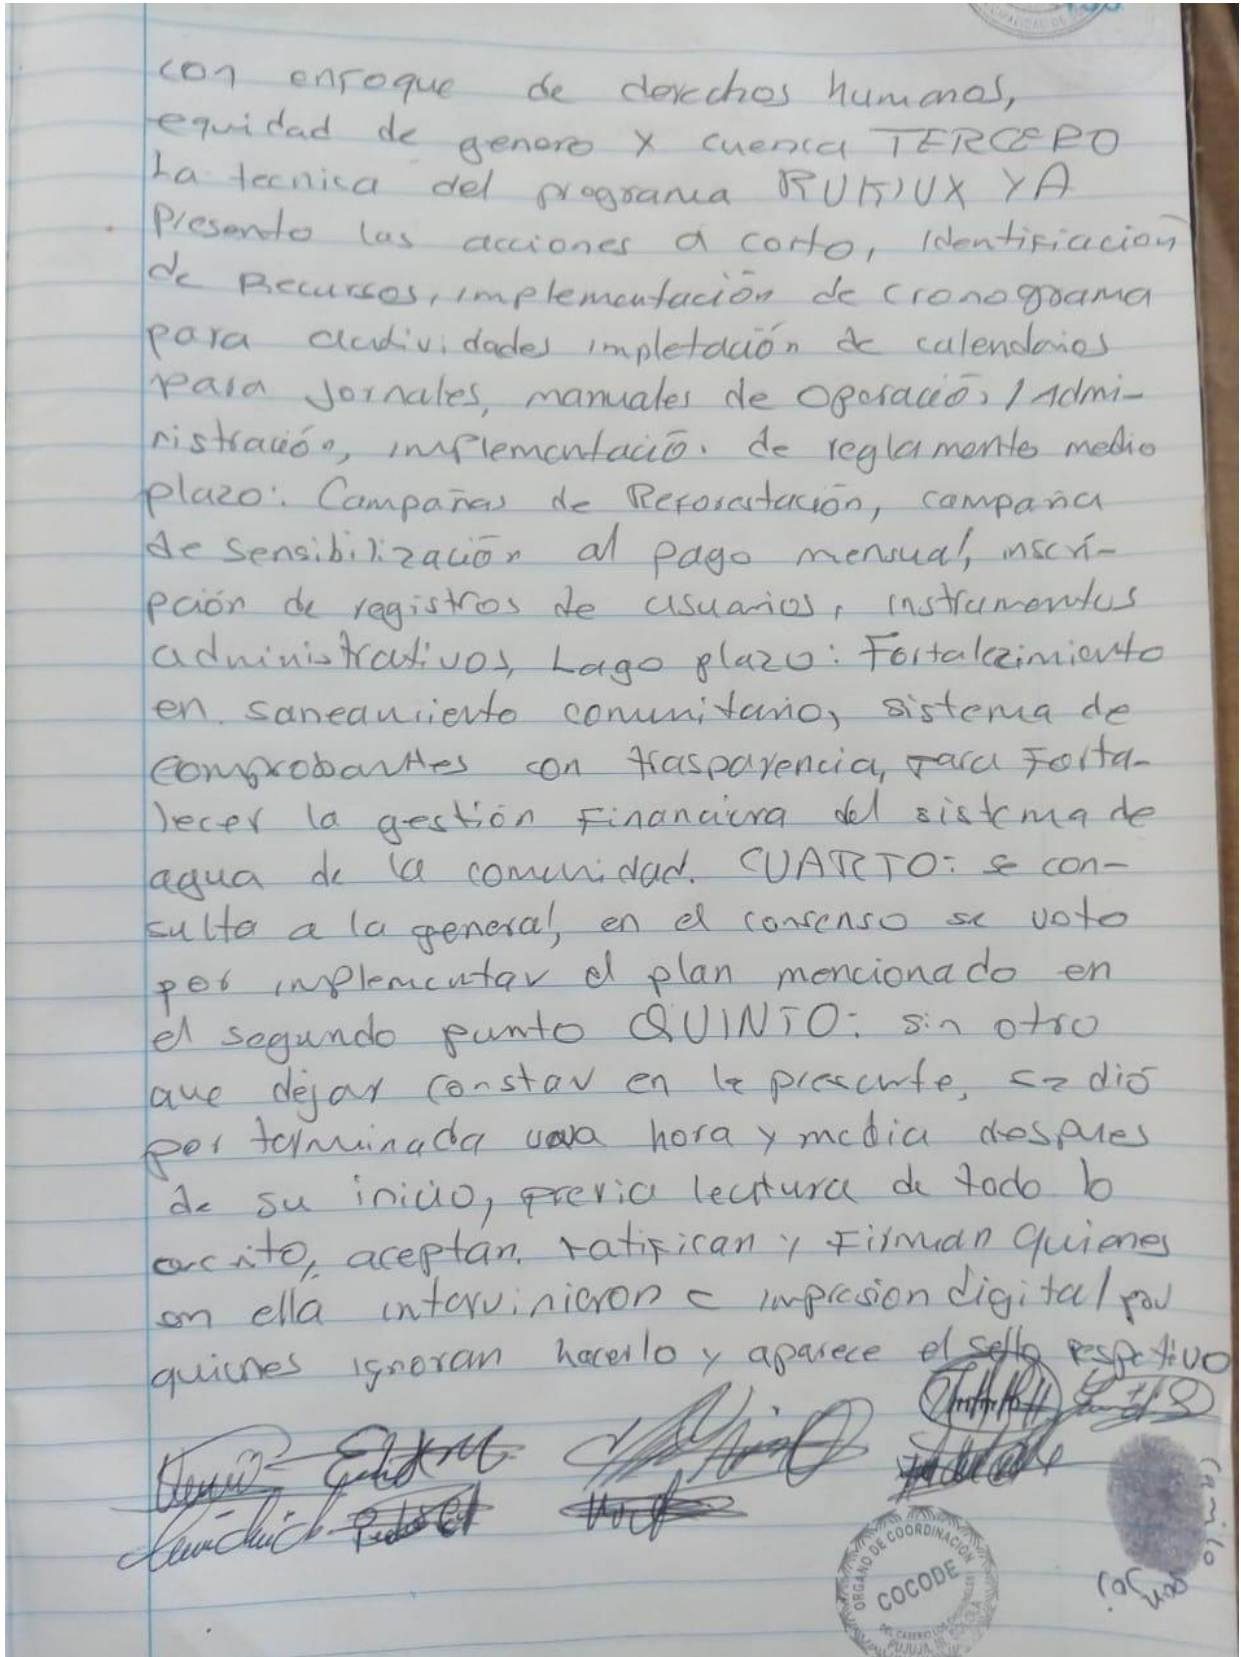 con enfoque de derechos humanos,
equidad de genero y cuenca TERCERO
La tecnica del programa RUK'UX YA
Presento las acciones a corto, Identificiacion
de Recursos, implementación de cronograma
para actividades impletación de calendarios
para Jornales, manuales de Operació, / Admi-
nistración, implementació. de reglamento medio
plazo: Campañas de Reforestación, campaña
de sensibilización al pago mensual, inscri-
pción de registros de usuarios, instrumentos
administrativos, Lago plazo: Fortalezimiento
en saneamiento comunitario, sistema de
comprobantes con trasparencia, para Forta-
lecer la gestión Financiera del sistema de
agua de la comunidad. CUARTO: se con-
sulta a la general, en el consenso se voto
por implementar el plan mencionado en
el segundo punto QUINTO: sin otro
que dejar constar en la presente, se dió
por terminada una hora y media despues
de su inicio, previa lectura de todo lo
escrito, aceptan, ratifican y Firman Quienes
en ella intervinieron e impresion digital por
quienes ignoran hacerlo y aparece el sello respetivo
Camilo
ORGANO DE COORDINACION
COCODE
DEL CASERIO LOS
PUJUJIL III, SOLOLA